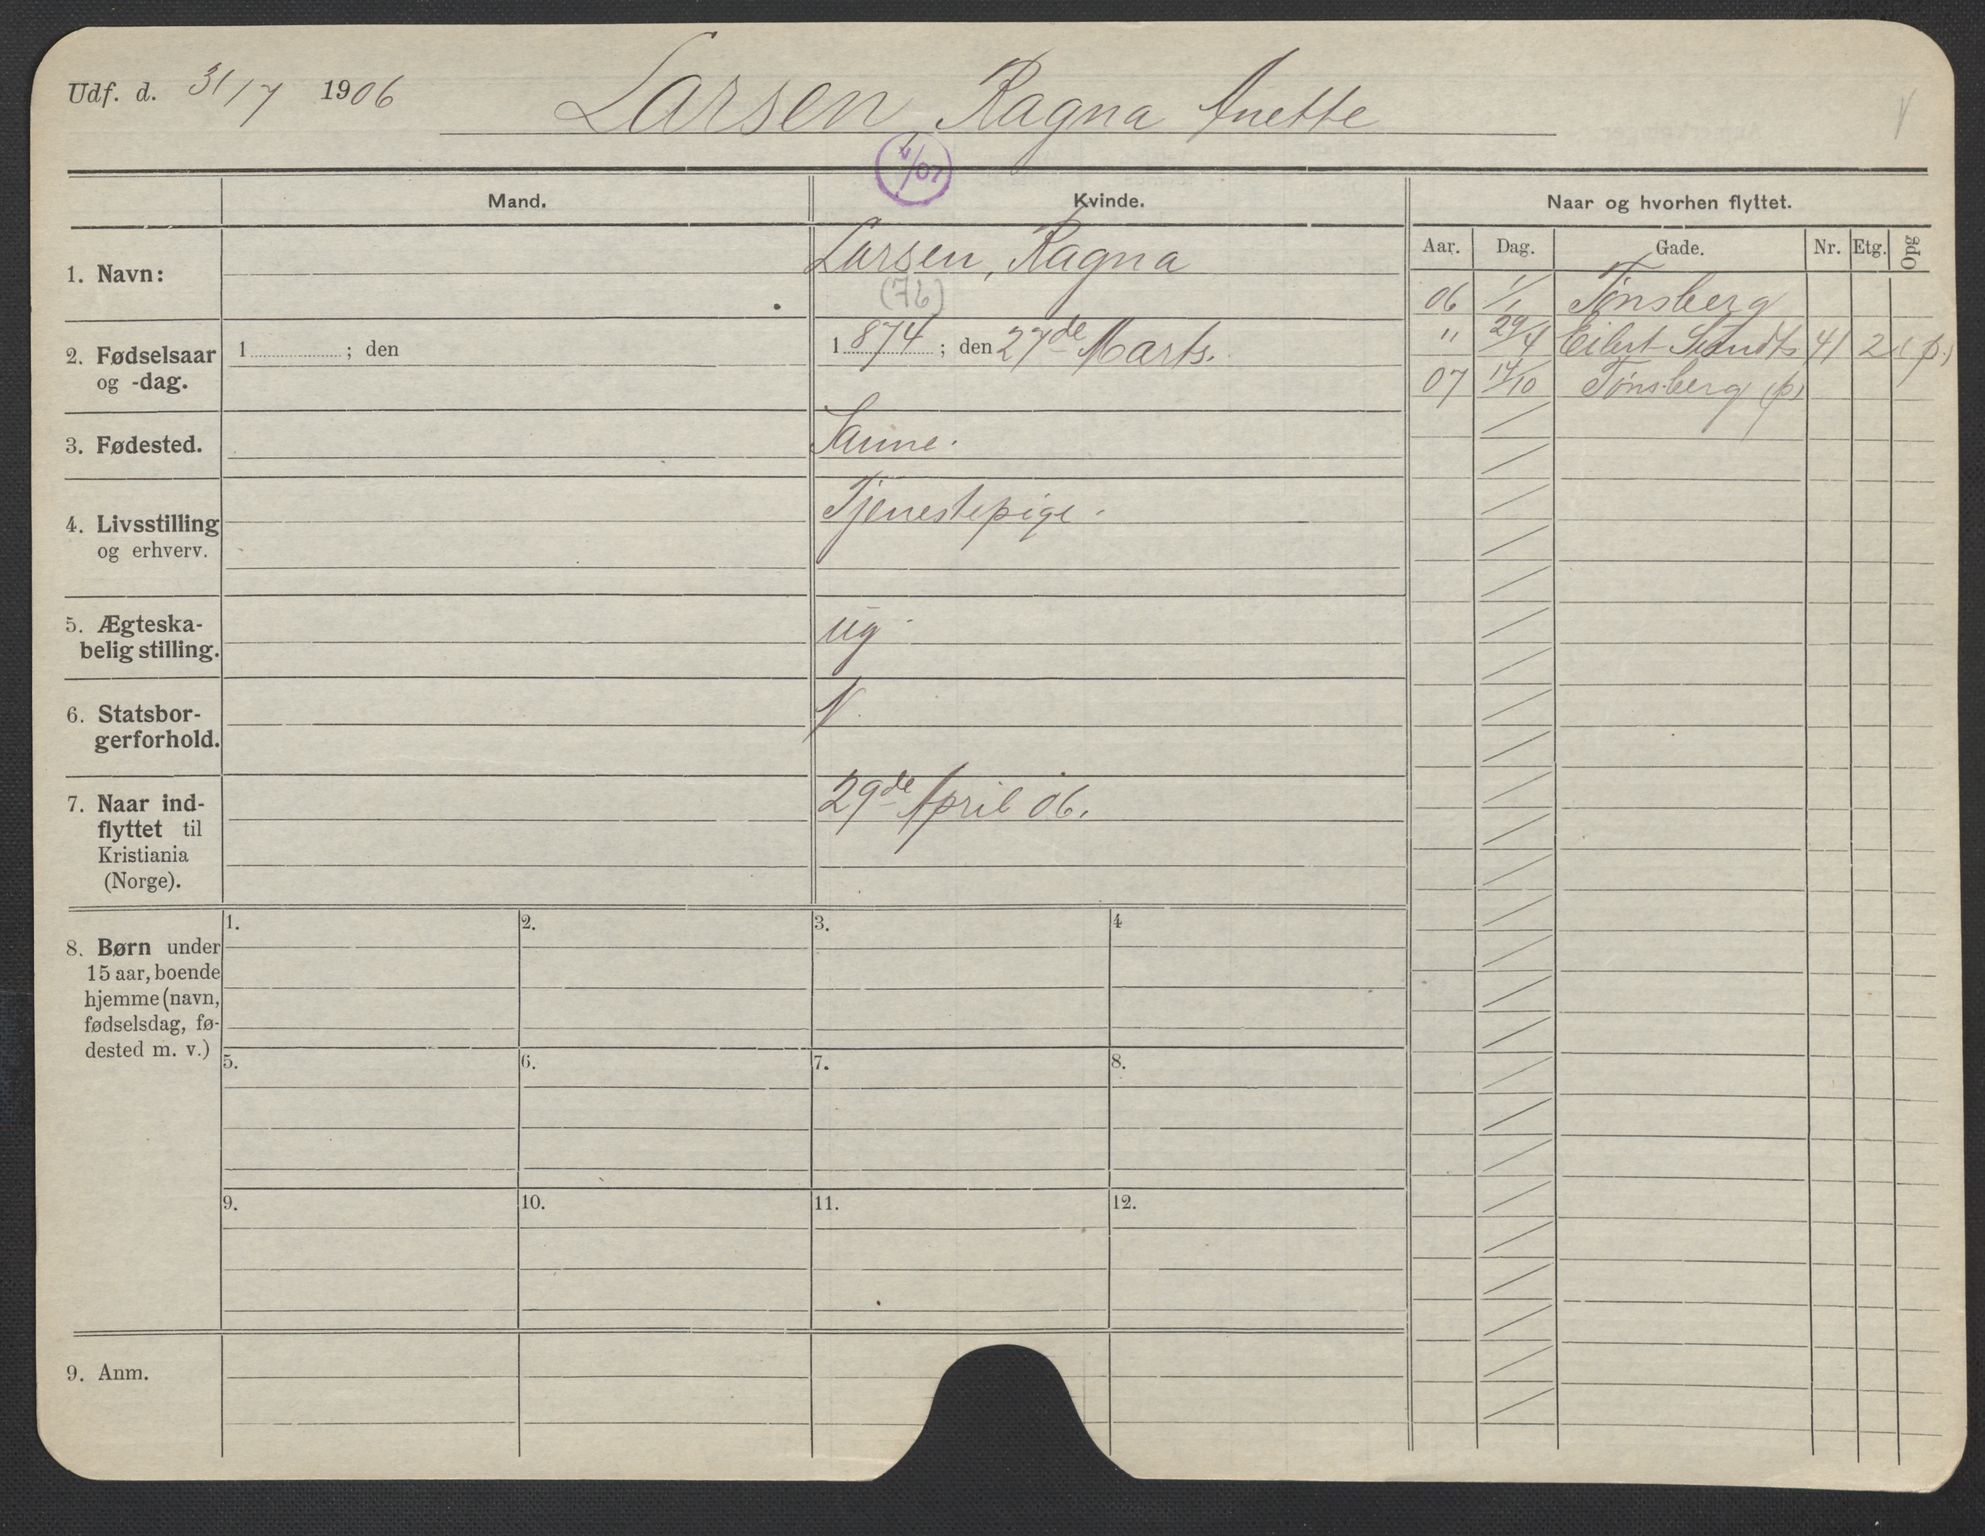 Udf. d. 31/7 1906 Larsen Ragna Anette
4/07
Mand. Kvinde. Naar og hvorhen flyttet.
Aar. Dag. Gade. Nr. Etg. Opg
1. Navn: Larsen, Ragna
(76)
06 1/1 Tønsberg
2. Fødselsaar og -dag.
1 ; den
1874 ; den 27de Marts.
" 29/4 Eilert Sundts 41 2 (p.)
07 14/10 Tønsberg (p)
3. Fødested. Saune.
4. Livsstilling og erhverv. Tjenestepige.
5. Ægteska-
belig stilling. ug
6. Statsbor-
gerforhold. N
7. Naar ind-
flyttet til
Kristiania
(Norge). 29de April 06.
8. Børn under
15 aar, boende
hjemme (navn,
fødselsdag, fø-
dested m. v.)
1. 2. 3. 4
5. 6. 7. 8.
9. 10. 11. 12.
9. Anm.